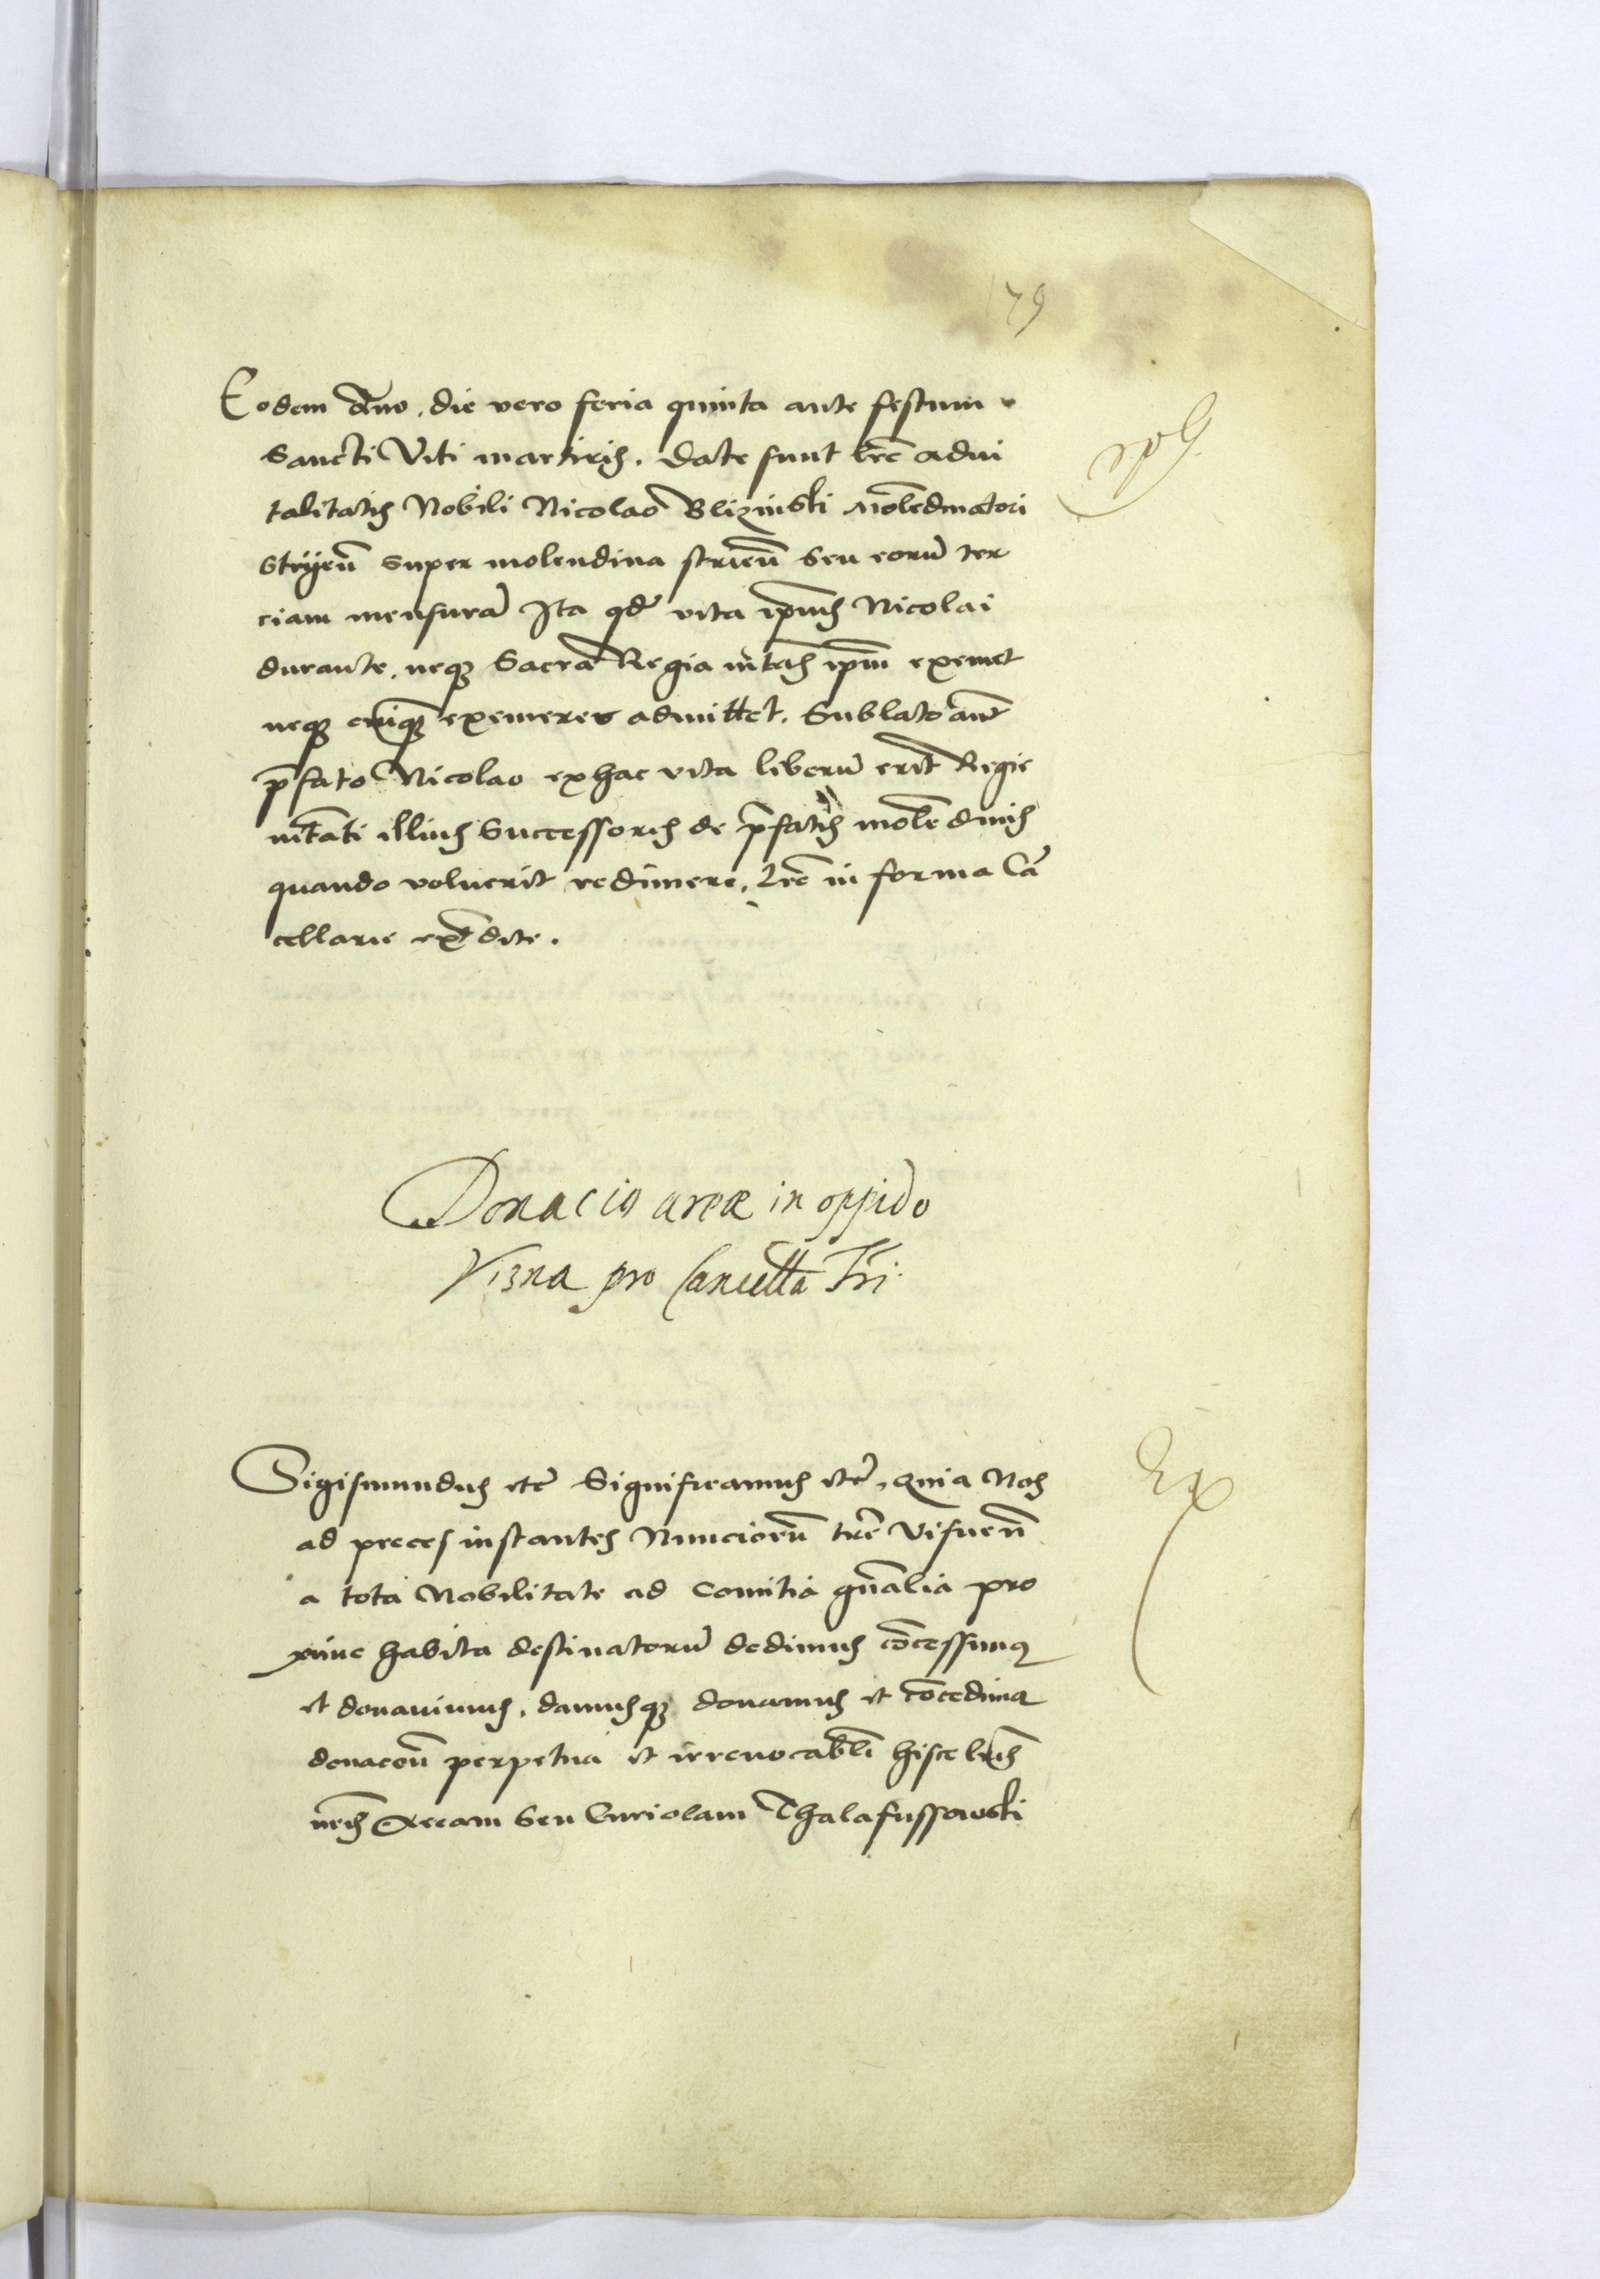 179
Eodem Anno, die vero feria quinta ante festum
Sancti Viti martiris. Date sunt lrē advi
talitatis Nobili Nicolao Blizinski Molēdinatori
Stryeñ super molendina strieñ seu eorū ter
ciam mensurā Ita qđ vita ipīus Nicolai
durante, neqȝ Sacra Regia mtās ipm̄ eximet
neqȝ cuiqȝ eximere admittet. Sublato aut̄
p̄fato Nicolao ex hac vita liberū erit Regie
mtāti illius Successoris de p̄fatis molēdinis
quando voluerit redimere, Lrē in forma Cā
cellarie exp̄edite.
Donacio areæ in oppido
Vizna pro Cancella Tri.
Sigismundus etc̄ Significamus etc̄, Quia Nos
ad preces instantes Nunciorū trē Visneñ
a tota Nobilitate ad Comitia gñalia pro
xime habita destinatorū dedimus cōcessimus
et donavimus, damusqȝ donamus et cōcedimus
donacoñ perpetua et irrevocabli hisce lris
nris Aream seu Curiolam Thalafussowski
Ex